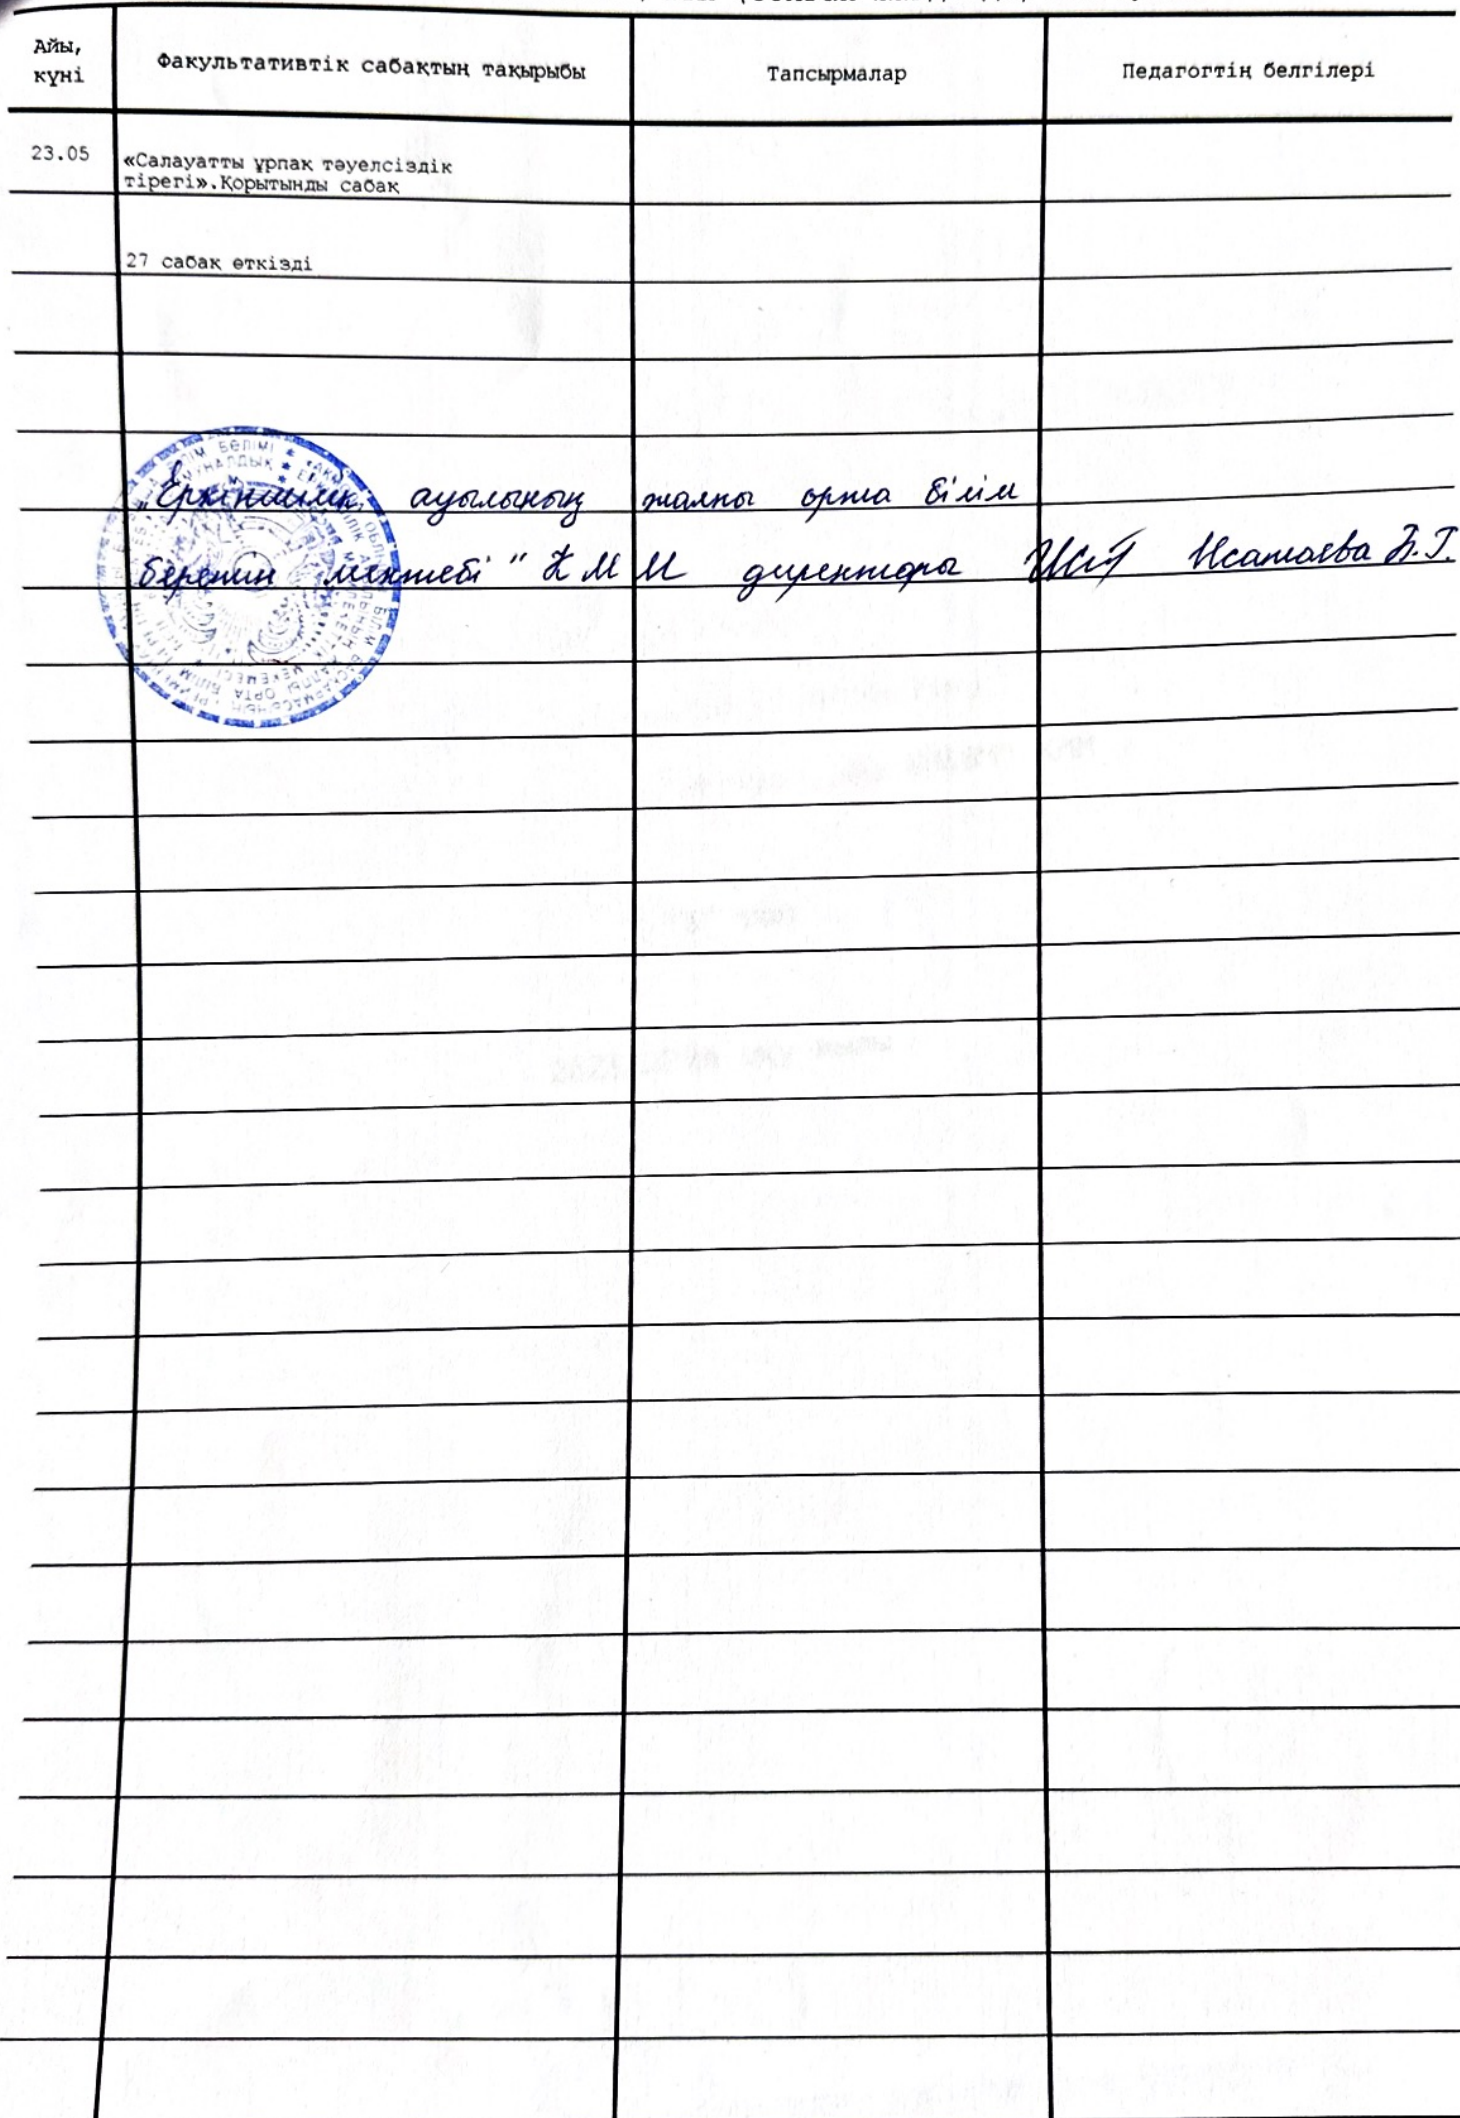 Айы,
күні
Факультативтік сабақтың тақырыбы
Тапсырмалар
Педагогтің белгілері
23.05
«Салауатты ұрпақ тәуелсіздік
тірегі».Қорытынды сабақ
27 сабақ өткізді
"Еркіншілік ауылының жалпы орта білім
беретін мектебі" КММ директоры Исатаева Б.Г.